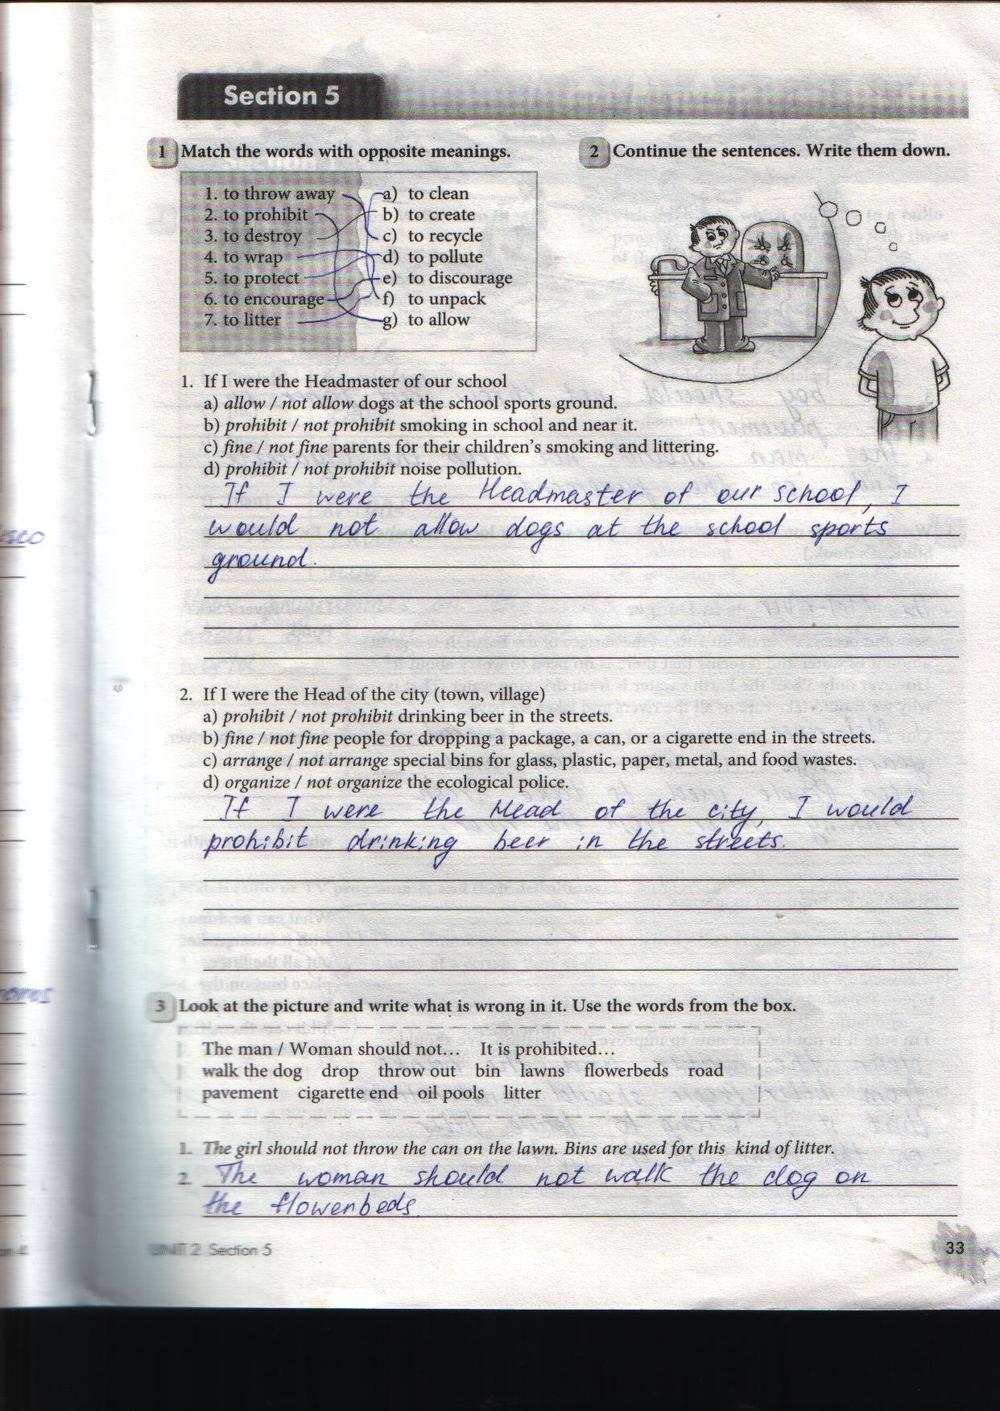 Section 5
1 Match the words with opposite meanings.
1. to throw away
2. to prohibit
3. to destroy
4. to wrap
5. to protect
6. to encourage
7. to litter
a) to clean
b) to create
c) to recycle
d) to pollute
e) to discourage
f) to unpack
g) to allow
2 Continue the sentences. Write them down.
1. If I were the Headmaster of our school
a) allow / not allow dogs at the school sports ground.
b) prohibit / not prohibit smoking in school and near it.
c) fine / not fine parents for their children's smoking and littering.
d) prohibit / not prohibit noise pollution.
If I were the Headmaster of our school, I
would not allow dogs at the school sports
ground.
2. If I were the Head of the city (town, village)
a) prohibit / not prohibit drinking beer in the streets.
b) fine / not fine people for dropping a package, a can, or a cigarette end in the streets.
c) arrange / not arrange special bins for glass, plastic, paper, metal, and food wastes.
d) organize / not organize the ecological police.
If I were the Head of the city, I would
prohibit drinking beer in the streets.
3 Look at the picture and write what is wrong in it. Use the words from the box.
The man / Woman should not... It is prohibited...
walk the dog drop throw out bin lawns flowerbeds road
pavement cigarette end oil pools litter
1. The girl should not throw the can on the lawn. Bins are used for this kind of litter.
2. The woman should not walk the dog on
the flowerbeds
UNIT 2 Section 5
33